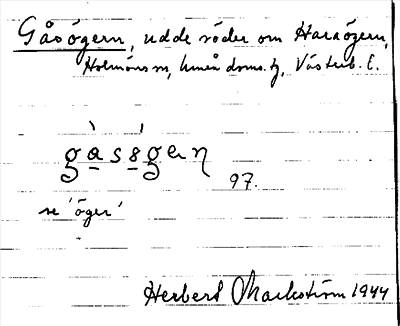 Gåsögern, udde söder om Haraögern,
Holmöns sn, Umeå doms. tg, Västerb. l.
gàs8́gen
97.
se 'öger'
Herbert Markström 1944